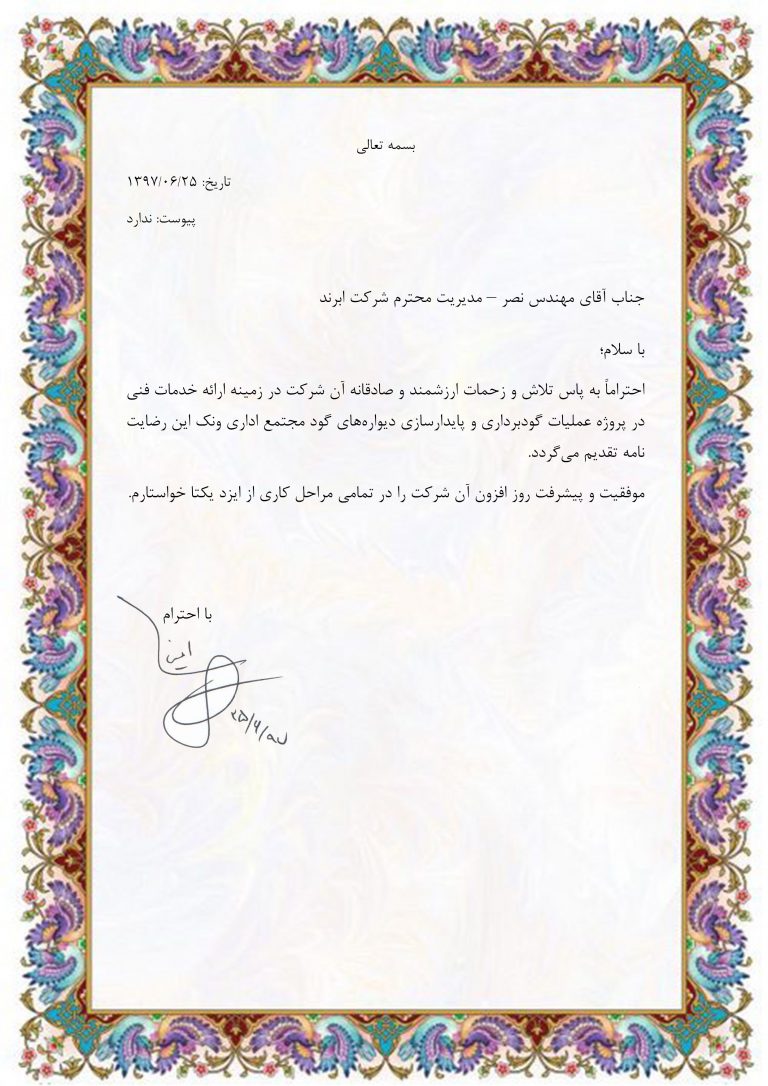 بسمه تعالی
تاریخ: ۱۳۹۷/۰۶/۲۵
پیوست: ندارد
جناب آقای مهندس نصر – مدیریت محترم شرکت ابرند
با سلام؛
احتراماً به پاس تلاش و زحمات ارزشمند و صادقانه آن شرکت در زمینه ارائه خدمات فنی
در پروژه عملیات گودبرداری و پایدارسازی دیواره‌های گود مجتمع اداری ونک این رضایت
نامه تقدیم می‌گردد.
موفقیت و پیشرفت روز افزون آن شرکت را در تمامی مراحل کاری از ایزد یکتا خواستارم.
با احترام